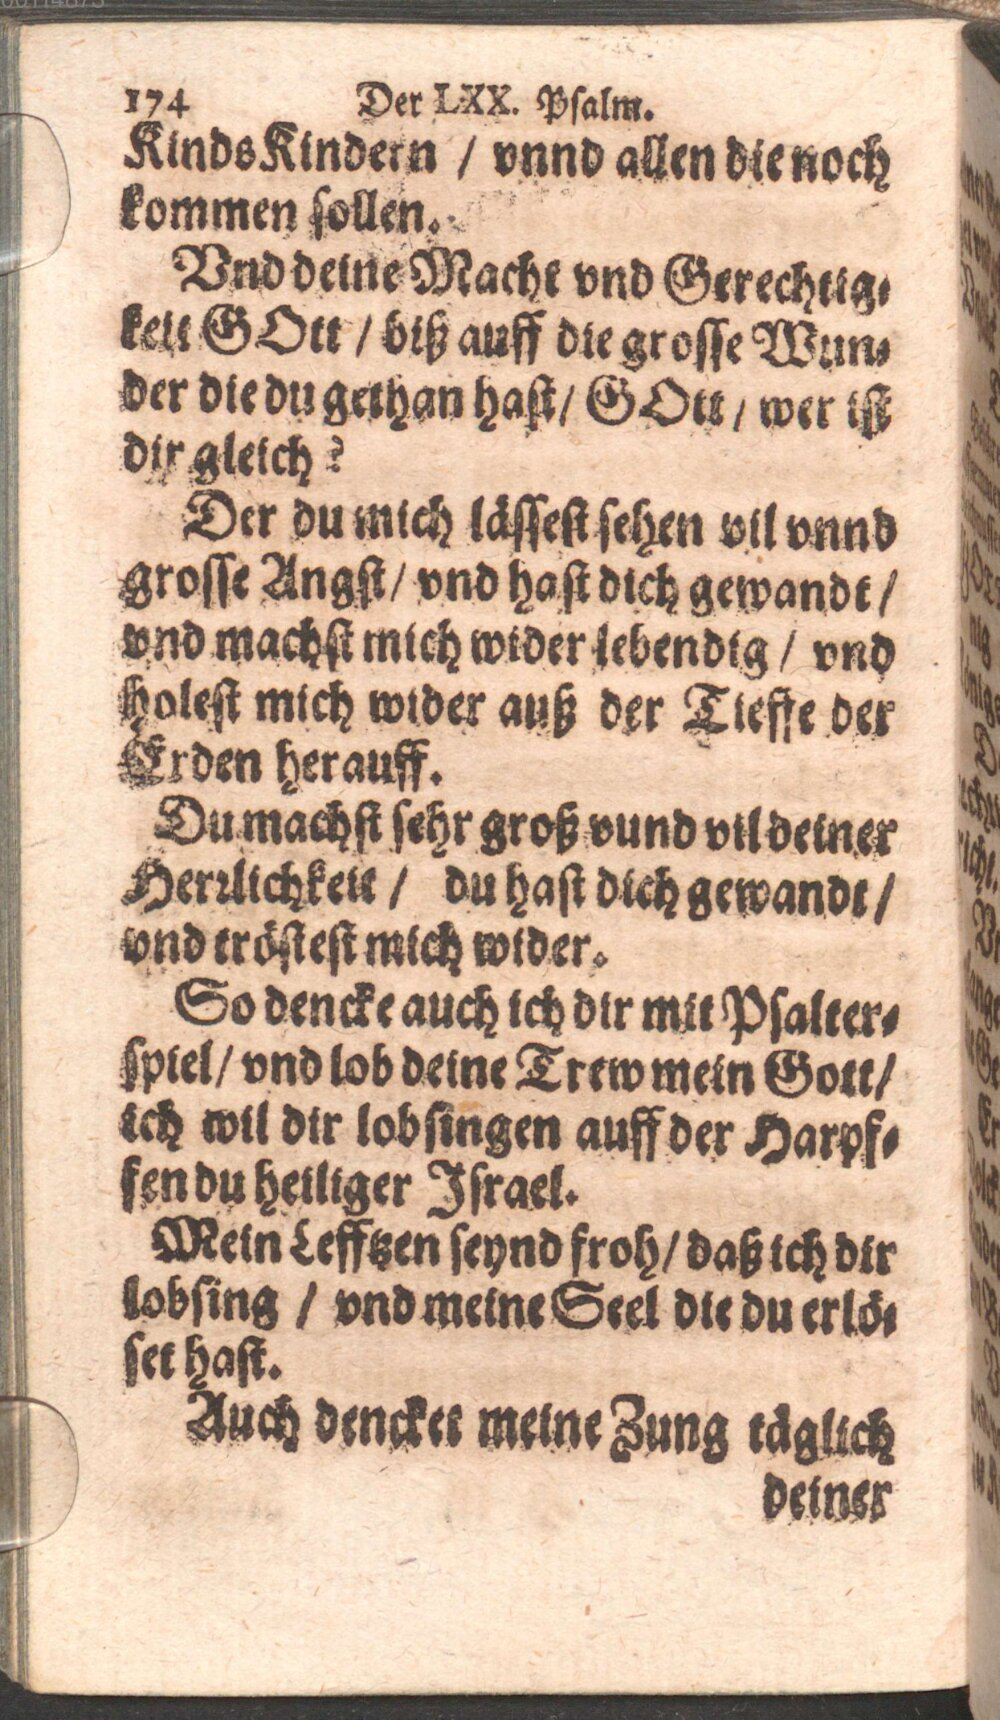 174 Der LXX. Psalm.
KindsKindern / vnnd allen die noch
kommen sollen.
Vnd deine Macht vnd Gerechtig-
keit GOtt / biß auff die grosse Wun-
der die du gethan hast / GOtt / wer ist
dir gleich?
Der du mich lässest sehen vil vnnd
grosse Angst / vnd hast dich gewandt /
vnd machst mich wider lebendig / vnd
holest mich wider auß der Tieffe der
Erden herauff.
Du machst sehr groß vund vil deiner
Herrlichkeit / du hast dich gewandt /
vnd tröstest mich wider.
So dencke auch ich dir mit Psalter-
spiel / vnd lob deine Trew mein Gott /
ich wil dir lobsingen auff der Harpf-
fen du heiliger Israel.
Mein Lefftzen seynd froh / daß ich dir
lobsing / vnd meine Seel die du erlö-
set hast.
Auch dencket meine Zung täglich
deiner